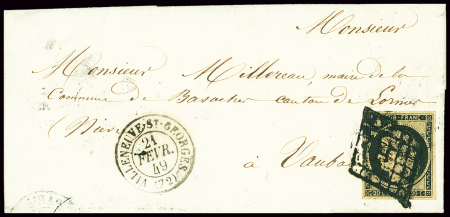 Monsieur
Monsieur Millereau, maire de la
Commune de Basoches canton de Lormes
(Nièvre
à Vauban
VILLENEUVE-ST-GEORGES (72)
21
FEVR.
49